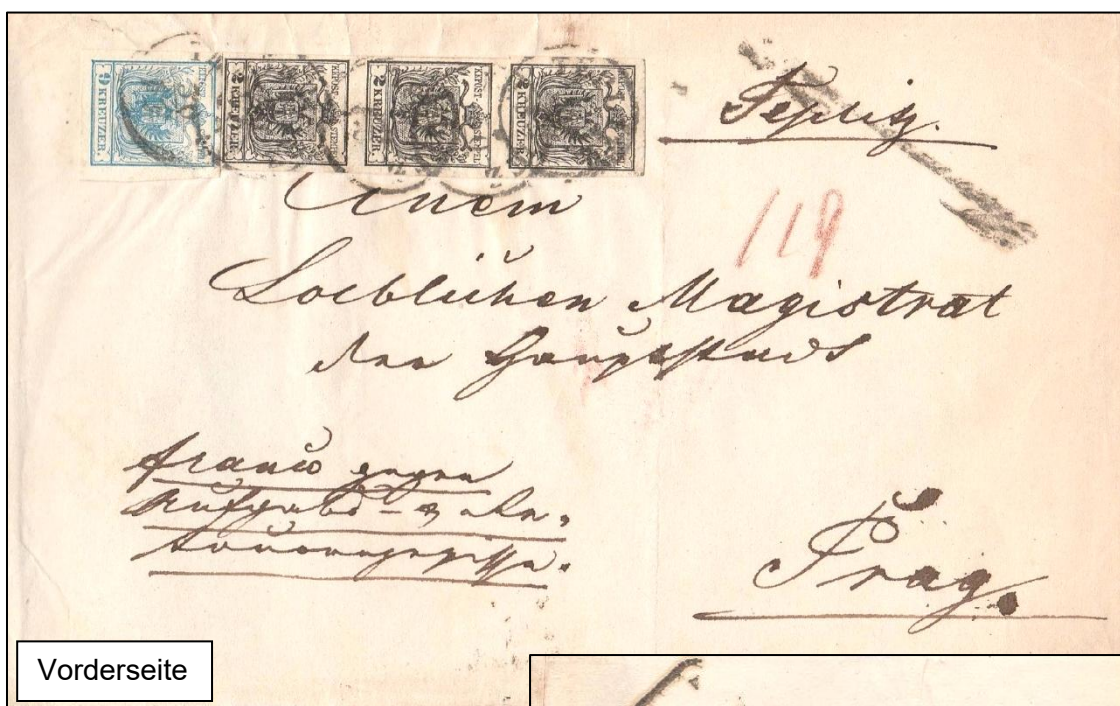 9 KREUZER.
2 KREUZER.
2 KREUZER.
2 KREUZER.
Teplitz.
119
Einem
Loeblichen Magistrat
der Hauptstadt
franco gegen
Aufgabs- &
Prag.
Vorderseite